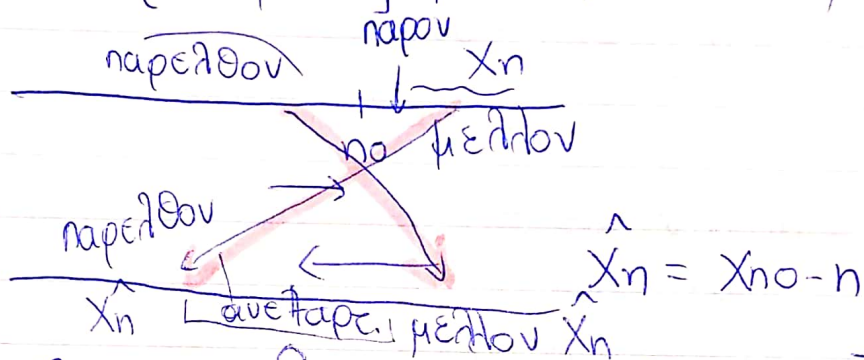 παρον
παρελθον Xn
no μελλον
παρελθον
X̂n = Xno-n
X̂n ανεξαρτ. μελλον X̂n